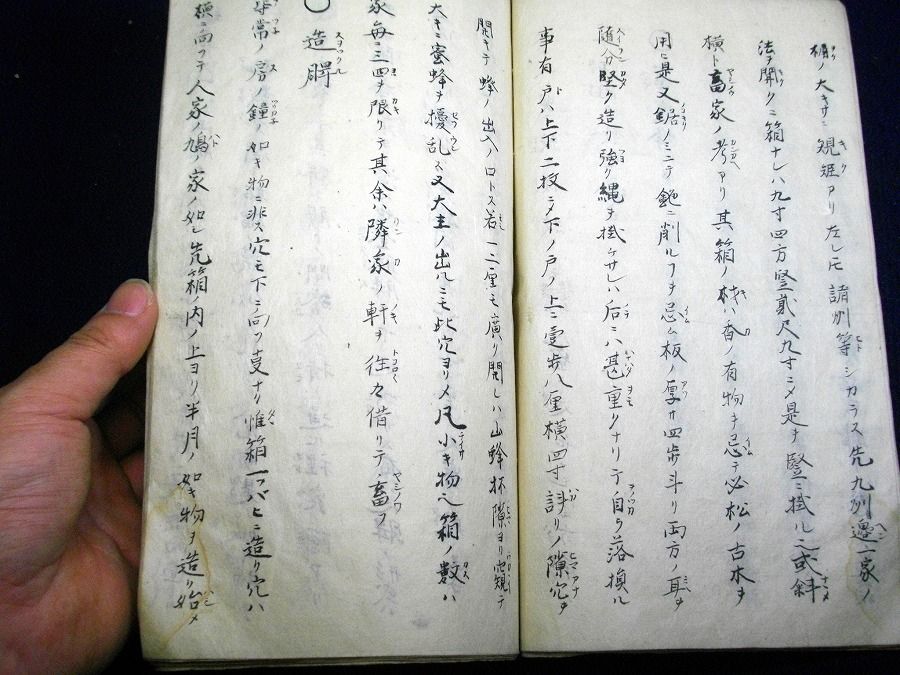 桶ノ大キサニ規矩アリ左レ𪜈諸州等シカラス先九州邊一家ノ
法ヲ聞クニ箱ナレハ九寸四方竪貳尺九寸ニメ是ヲ竪ニ掛ル二或斜
横ト畜家ノ考アリ其箱ノ材ハ香ノ有物ヲ忌テ必松ノ古木ヲ
用ニ是又鋸ノミニテ鉋ニ削ルフヲ忌ム板ノ厚サ四歩斗リ両方ノ耳ヲ
随分堅ク造リ強ク縄ヲ掛ケサレハ后ニハ甚重クナリテ自ラ落損ル
事有戸ハ上下二枚ニメ下ノ戸ノ上ニ壹歩八厘横四寸計リノ隙穴ヲ
開キテ蜂ノ出入ノ口トス若一二厘モ廣ク開レハ山蜂抔隙ヨリ窺テ
大キニ蜜蜂ヲ擾乱ス又大王ノ出ルニモ此穴ヨリメ凡小キ物也箱ノ數ハ
家毎ニ三四ヲ限リテ其余ハ隣家ノ軒ヲ往々借リテ畜フ
〇造脾
非常ノ房ノ鐘ノ如キ物ニ非ス穴モ下ニ向フ叓ナリ惟箱一ツパヒニ造リ穴ハ
横ニ向フテ人家ノ鳩ノ家ノ如し先箱ノ内ノ上ヨリ半月ノ如キ物ヲ造リ始メ